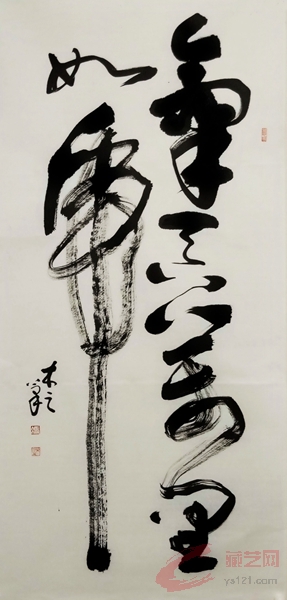 氣吞万里
如虎
木之
藏艺网
ys121.com